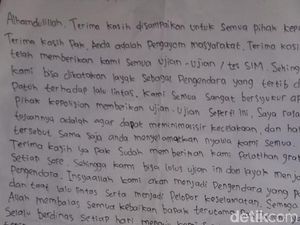 Alhamdulillah, Terima kasih disampaikan untuk semua pihak kepo
Terima kasih Pak, Anda adalah Pengayom masyarakat. Terima kasi
telah memberikan kami semua Ujian-Ujian / tes SIM. Sehing
kami bisa dikatakan layak sebagai Pengendara yang tertib d
Patuh terhadap lalu lintas. Kami semua Sangat bersyukur a
pihak kepolisian memberikan Ujian-Ujian Seperti ini, Saya rasa
tujuannya adalah agar dapat meminimalisir kecelakaan, dan ha
tersebut Sama Saja anda menyelamatkan nyawa kami semua.
Terima kasih ya Pak Sudah memberikan kami Pelatihan grat
Setiap Sore. Sehingga kami bisa lulus ujian ini dan layak menja
Pengendara. Insyaallah kami akan menjadi Pengendara yang p
dan taat lalu lintas Serta menjadi Pelopor keselamatan. Semoga
Allah membalas semua kebaikan bapak terutama
Selalu berdinas Setiap hari
detikcom